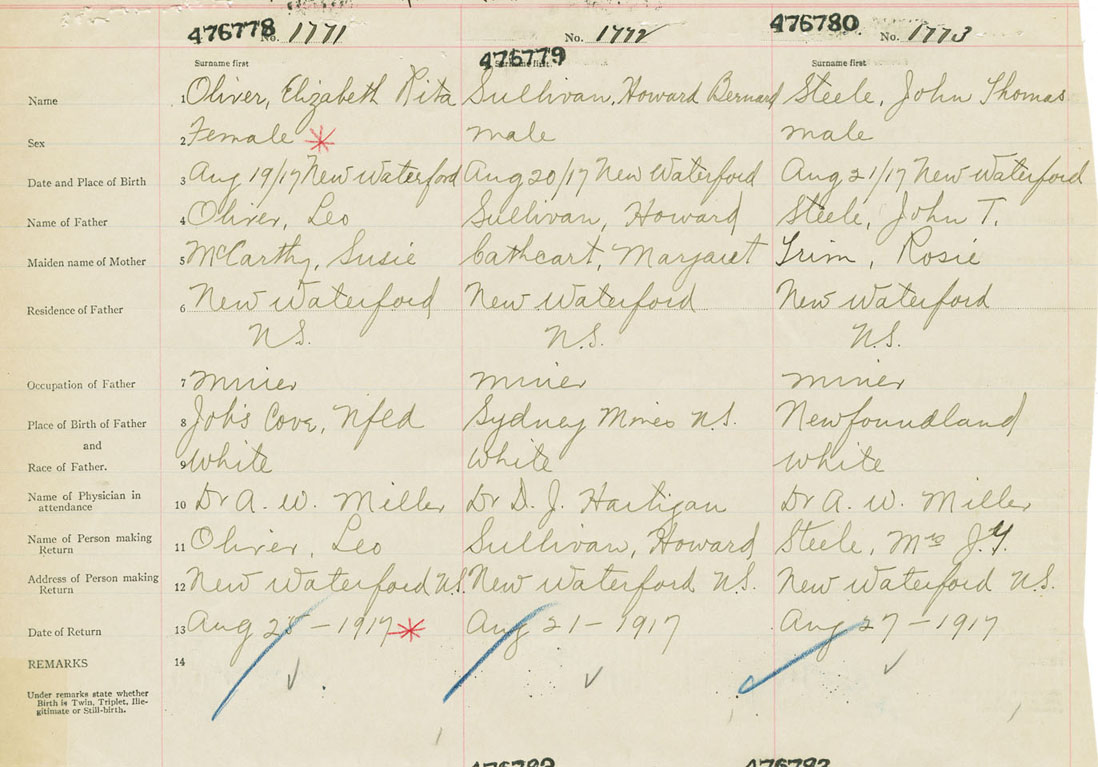 476778 No. 1771
476779 No. 1772
476780 No. 1773
Surname first Surname first. Surname first
Name 1 Oliver, Elizabeth Rita Sullivan, Howard Bernard Steele, John Thomas
Sex 2 Female * male male
Date and Place of Birth 3 Aug 19/17 New Waterford Aug 20/17 New Waterford Aug 21/17 New Waterford
Name of Father 4 Oliver, Leo Sullivan, Howard Steele, John T.
Maiden name of Mother 5 McCarthy, Susie Cathcart, Margaret Trim, Rosie
Residence of Father 6 New Waterford New Waterford New Waterford
N.S. N.S. N.S.
Occupation of Father 7 miner miner miner
Place of Birth of Father 8 Job's Cove, Nfld Sydney Mines N.S. Newfoundland
and
Race of Father. 9 White White White
Name of Physician in
attendance 10 Dr A. W. Miller Dr D. J. Hartigan Dr A. W. Miller
Name of Person making
Return 11 Oliver, Leo Sullivan, Howard Steele, Mrs J.
Address of Person making
Return 12 New Waterford N.S. New Waterford N.S. New Waterford N.S.
Date of Return 13 Aug 28 - 1917 * Aug 21 - 1917 Aug 27 - 1917
REMARKS 14
Under remarks state whether
Birth is Twin, Triplet, Ille-
gitimate or Still-birth.